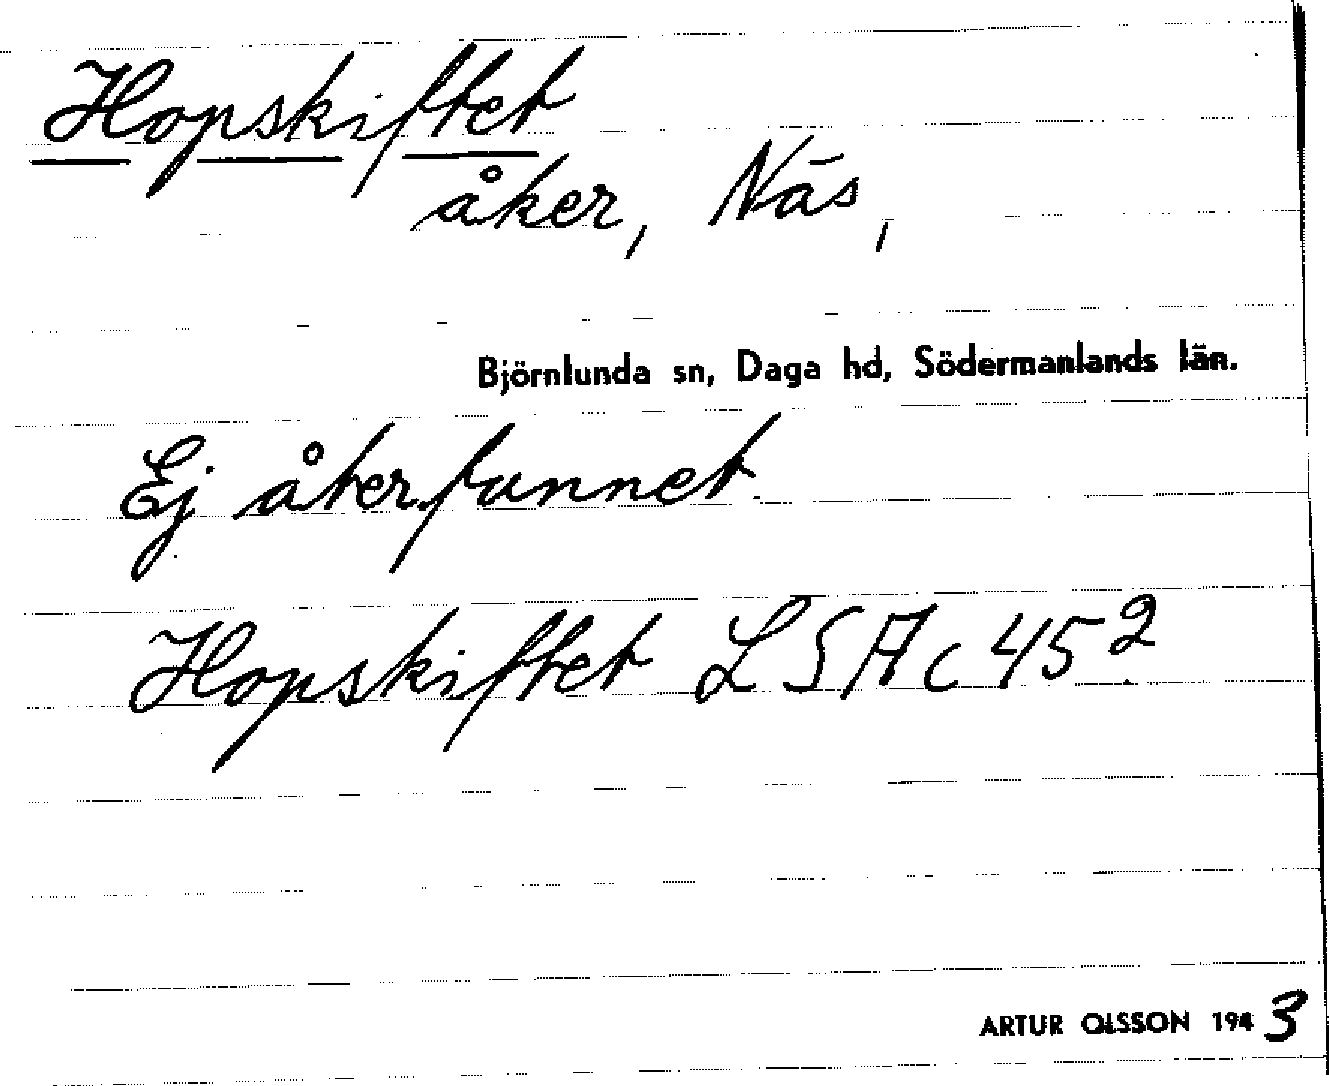 Hopskiftet
åker, Näs,
Björnlunda sn, Daga hd, Södermanlands län.
Ej återfunnet
Hopskiftet LSA c 45²
ARTUR OLSSON 1943